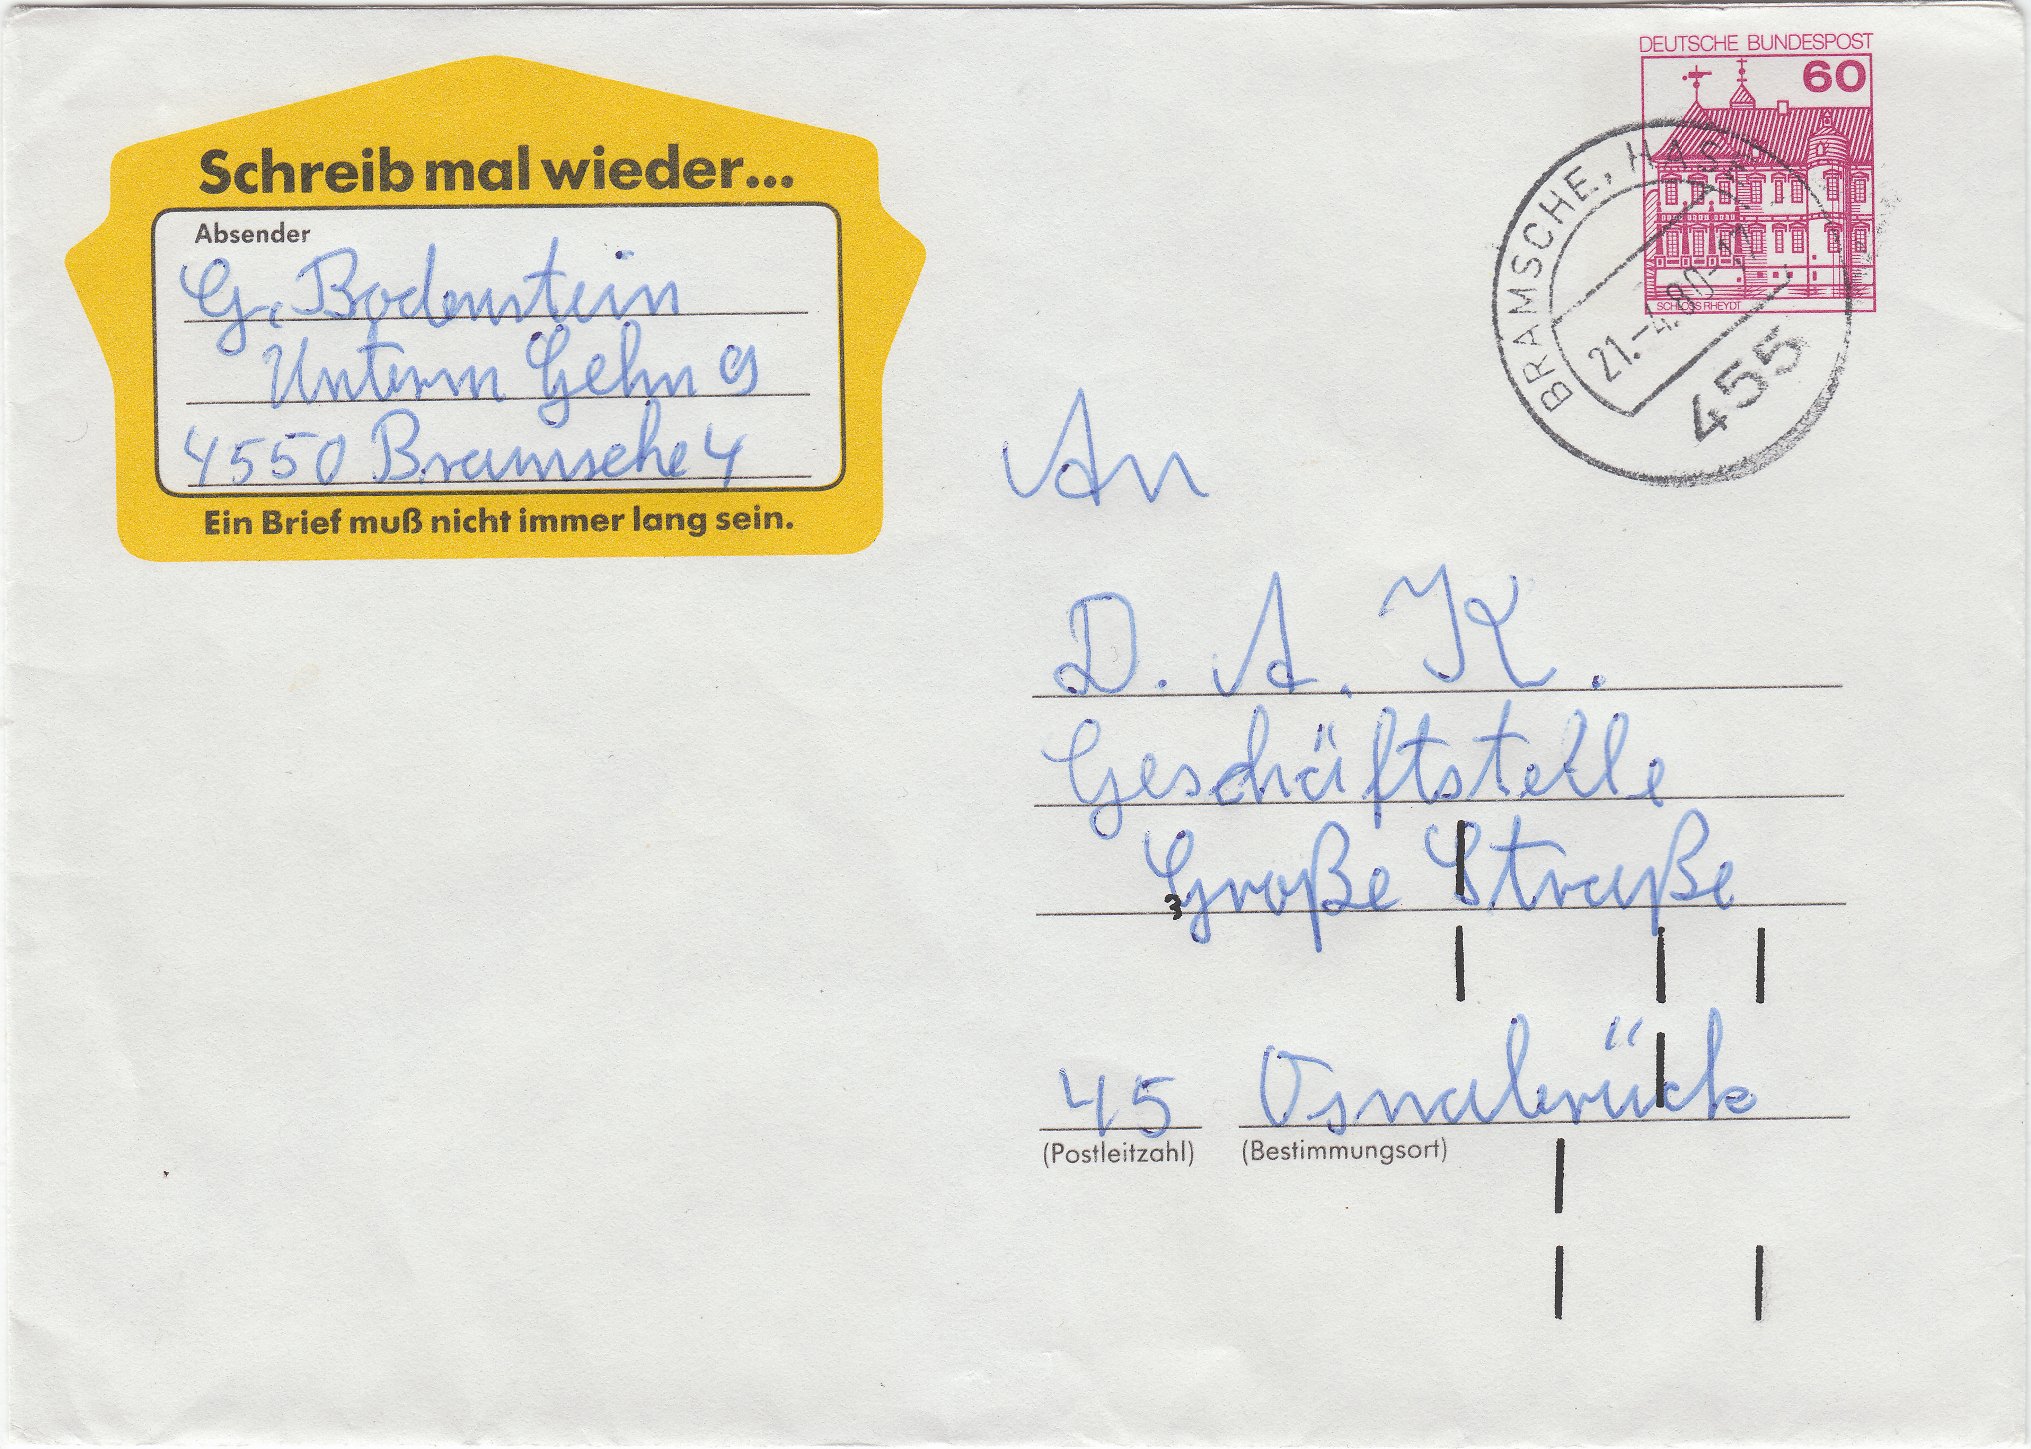 Schreib mal wieder...
Absender
G. Bodenstein
Unterm Gehn 9
4550 Bramsche 4
Ein Brief muß nicht immer lang sein.
DEUTSCHE BUNDESPOST
60
SCHLOSS RHEYDT
BRAMSCHE, HASE
21.-4.80-17
455
An
D. A. K.
Geschäftstelle
Große Straße
3
45 Osnabrück
(Postleitzahl) (Bestimmungsort)